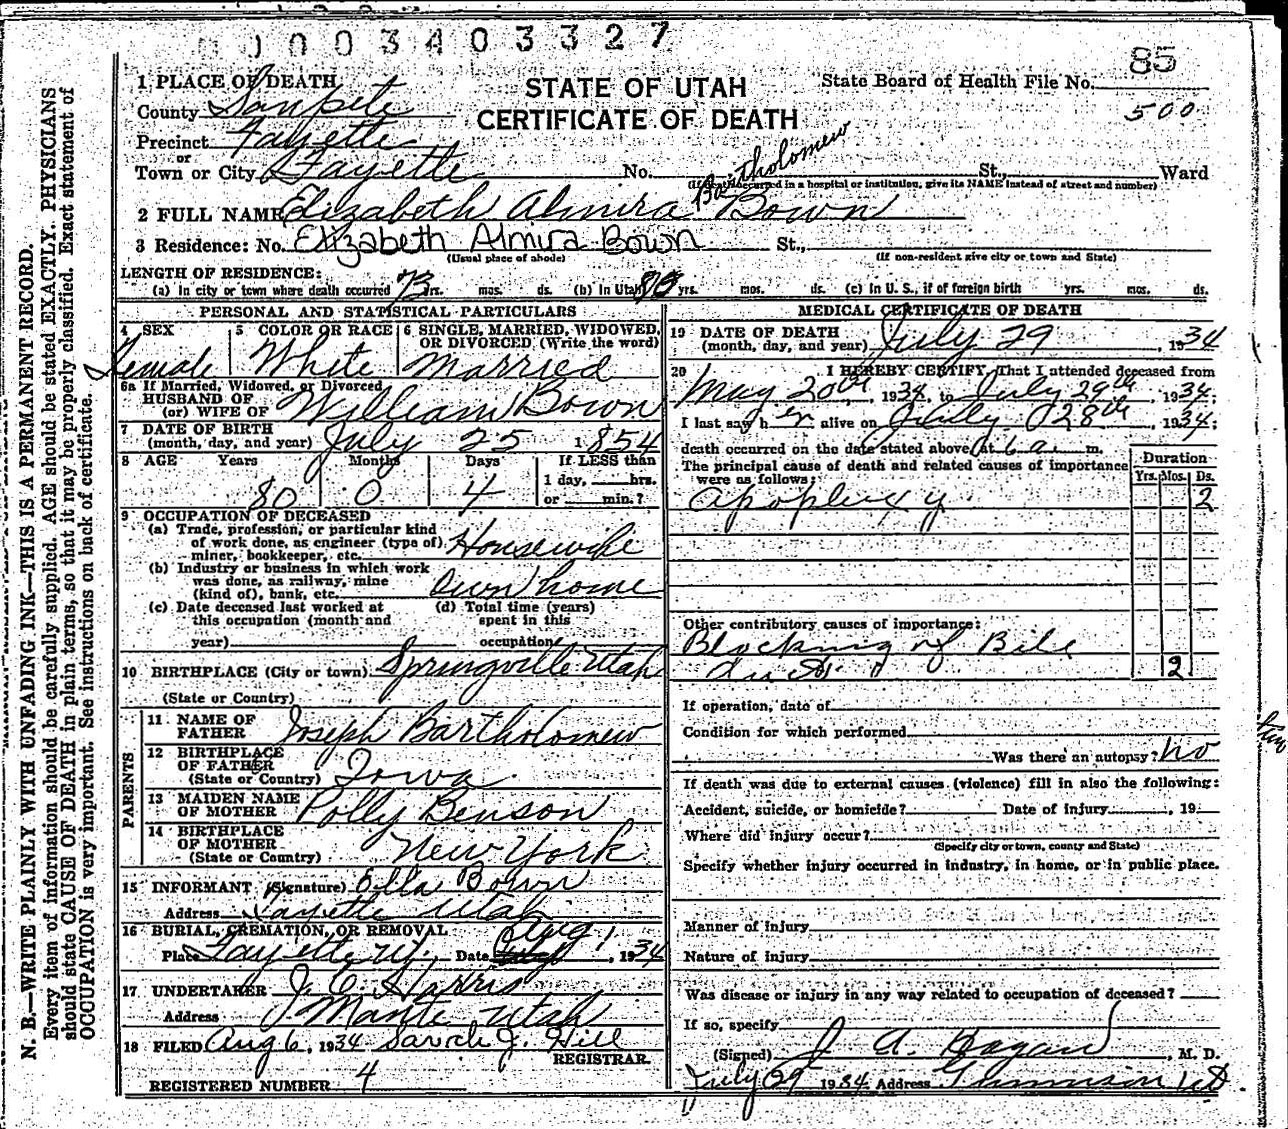 0 0 0 0 3 4 0 3 3 2 7
85
1 PLACE OF DEATH
STATE OF UTAH
CERTIFICATE OF DEATH
State Board of Health File No.
500
County Sanpete
Precinct Fayette
or
Town or City Fayette No. St., Ward
(If death occurred in a hospital or institution, give its NAME instead of street and number)
Bartholomew
2 FULL NAME Elizabeth Almira Bown
3 Residence: No. Elizabeth Almira Bown St.,
(Usual place of abode) (If non-resident give city or town and State)
LENGTH OF RESIDENCE:
(a) In city or town where death occurred 73 yrs. mos. ds. (b) In Utah 80 yrs. mos. ds. (c) In U. S., if of foreign birth yrs. mos. ds.
PERSONAL AND STATISTICAL PARTICULARS
4 SEX Female
5 COLOR OR RACE White
6 SINGLE, MARRIED, WIDOWED,
OR DIVORCED (Write the word)
Married
6a If Married, Widowed, or Divorced
HUSBAND OF
(or) WIFE OF William Bown
7 DATE OF BIRTH
(month, day, and year) July 25 1854
8 AGE Years Months Days If LESS than
1 day, hrs.
80 0 4 or min.?
9 OCCUPATION OF DECEASED
(a) Trade, profession, or particular kind
of work done, as engineer (type of)
miner, bookkeeper, etc. Housewife
(b) Industry or business in which work
was done, as railway, mine
(kind of), bank, etc. Own home
(c) Date deceased last worked at
this occupation (month and
year)
(d) Total time (years)
spent in this
occupation
10 BIRTHPLACE (City or town) Springville Utah
(State or Country)
PARENTS
11 NAME OF
FATHER Joseph Bartholomew
12 BIRTHPLACE
OF FATHER
(State or Country) Iowa
13 MAIDEN NAME
OF MOTHER Polly Benson
14 BIRTHPLACE
OF MOTHER
(State or Country) New York
15 INFORMANT (Signature) Ella Bown
Address Fayette Utah
16 BURIAL, CREMATION, OR REMOVAL
Place Fayette, Ut. Date Aug 1, 1934
17 UNDERTAKER J. C. Harris
Address Manti Utah
18 FILED Aug 6, 1934 Sarah J. Hill
REGISTRAR.
REGISTERED NUMBER 4
MEDICAL CERTIFICATE OF DEATH
19 DATE OF DEATH
(month, day, and year) July 29, 1934
20 I HEREBY CERTIFY, That I attended deceased from
May 20th, 1934, to July 29th, 1934;
I last saw her alive on July 28th, 1934;
death occurred on the date stated above, at 6 a. m.
The principal cause of death and related causes of importance
were as follows:
Duration
Yrs. Mos. Ds.
apoplexy 2
Other contributory causes of importance:
Blocking of Bile
duct 2
If operation, date of
Condition for which performed
Was there an autopsy? no
If death was due to external causes (violence) fill in also the following:
Accident, suicide, or homicide? Date of injury, 19
Where did injury occur?
(Specify city or town, county and State)
Specify whether injury occurred in industry, in home, or in public place.
Manner of injury
Nature of injury
Was disease or injury in any way related to occupation of deceased?
If so, specify
(Signed) J. A. Hagan, M. D.
July 29 1934 Address Gunnison Ut
N. B.—WRITE PLAINLY WITH UNFADING INK—THIS IS A PERMANENT RECORD.
Every item of information should be carefully supplied. AGE should be stated EXACTLY. PHYSICIANS
should state CAUSE OF DEATH in plain terms, so that it may be properly classified. Exact statement of
OCCUPATION is very important. See instructions on back of certificate.